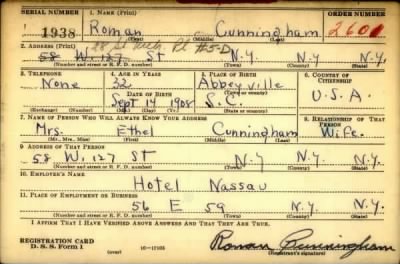 SERIAL NUMBER 1. NAME (Print) ORDER NUMBER
1938 Roman Cunningham 2601
(First) (Middle) (Last)
2. ADDRESS (Print) 28 St
58 W. 127 ST N.Y. N.Y
(Number and street or R. F. D. number) (Town) (County) (State)
3. TELEPHONE 4. AGE IN YEARS 5. PLACE OF BIRTH 6. COUNTRY OF CITIZENSHIP
None 32 Abbeyville
DATE OF BIRTH (Town or county)
Sept 14 1908 S.C. U.S.A.
(Exchange) (Number) (Mo.) (Day) (Yr.) (State or country)
7. NAME OF PERSON WHO WILL ALWAYS KNOW YOUR ADDRESS 8. RELATIONSHIP OF THAT PERSON
Mrs. Ethel Cunningham Wife.
(Mr., Mrs., Miss) (First) (Middle) (Last)
9. ADDRESS OF THAT PERSON
58 W. 127 ST N.Y. N.Y.
(Number and street or R. F. D. number) (Town) (County) (State)
10. EMPLOYER'S NAME
Hotel Nassau
11. PLACE OF EMPLOYMENT OR BUSINESS
56 E 59 N.Y. N.Y.
(Number and street or R. F. D. number) (Town) (County) (State)
I AFFIRM THAT I HAVE VERIFIED ABOVE ANSWERS AND THAT THEY ARE TRUE.
REGISTRATION CARD
D. S. S. Form 1 (over) 16-17105 Roman Cunningham
(Registrant's signature)